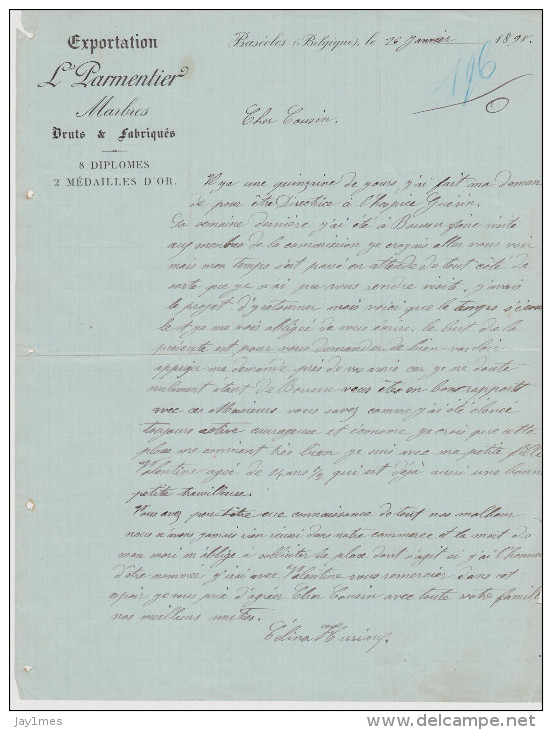 Exportation
L. Parmentier
Marbres
Bruts & Fabriqués
8 DIPLOMES
2 MÉDAILLES D'OR.
Basècles (Belgique), le 26 Janvier 1898.
196
Cher Cousin.
Il y a une quinzaine de yours, j'ai fait ma deman
de pour être Directrice à l'hospice Guérin.
La semaine dernière j'ai été à Boussu faire visite
aux membres de la commission je croyais aller vous voir
mais mon temps s'est passé en attende de tout côté de
sorte que je n'ai pu vous rendre visite, j'avais
le projet d'y retourner mais voici que le temps s'écou
le et je me vois obligée de vous écrire. le but de la
présente est pour vous demander de bien vouloir
appuyer ma demande près de vos amis car je ne doute
nullement étant de Boussu vous êtes en bons rapports
avec ces Messieurs. vous savez comme j'ai été élevée
toujours active courageuse et économe je crois que cette
place me convient très bien je suis avec ma petite fille
Valentine agée de 14 ans 1/2 qui est déjà aussi une bonne
petite travailleuse.
Vous avez peut être eue connaissance de tout nos malheur
nous n'avons jamais rien réussi dans notre commerce et la mort de
mon mari m'oblige à solliciter la place dont s'agit si j'ai l'honneur
d'être nommée j'irai avec Valentine vous remercier dans cet
espoir je vous prie d'agréer Cher Cousin avec toute votre famille
nos meilleurs amitiés.
Célina
jay1mes
delcampe.net